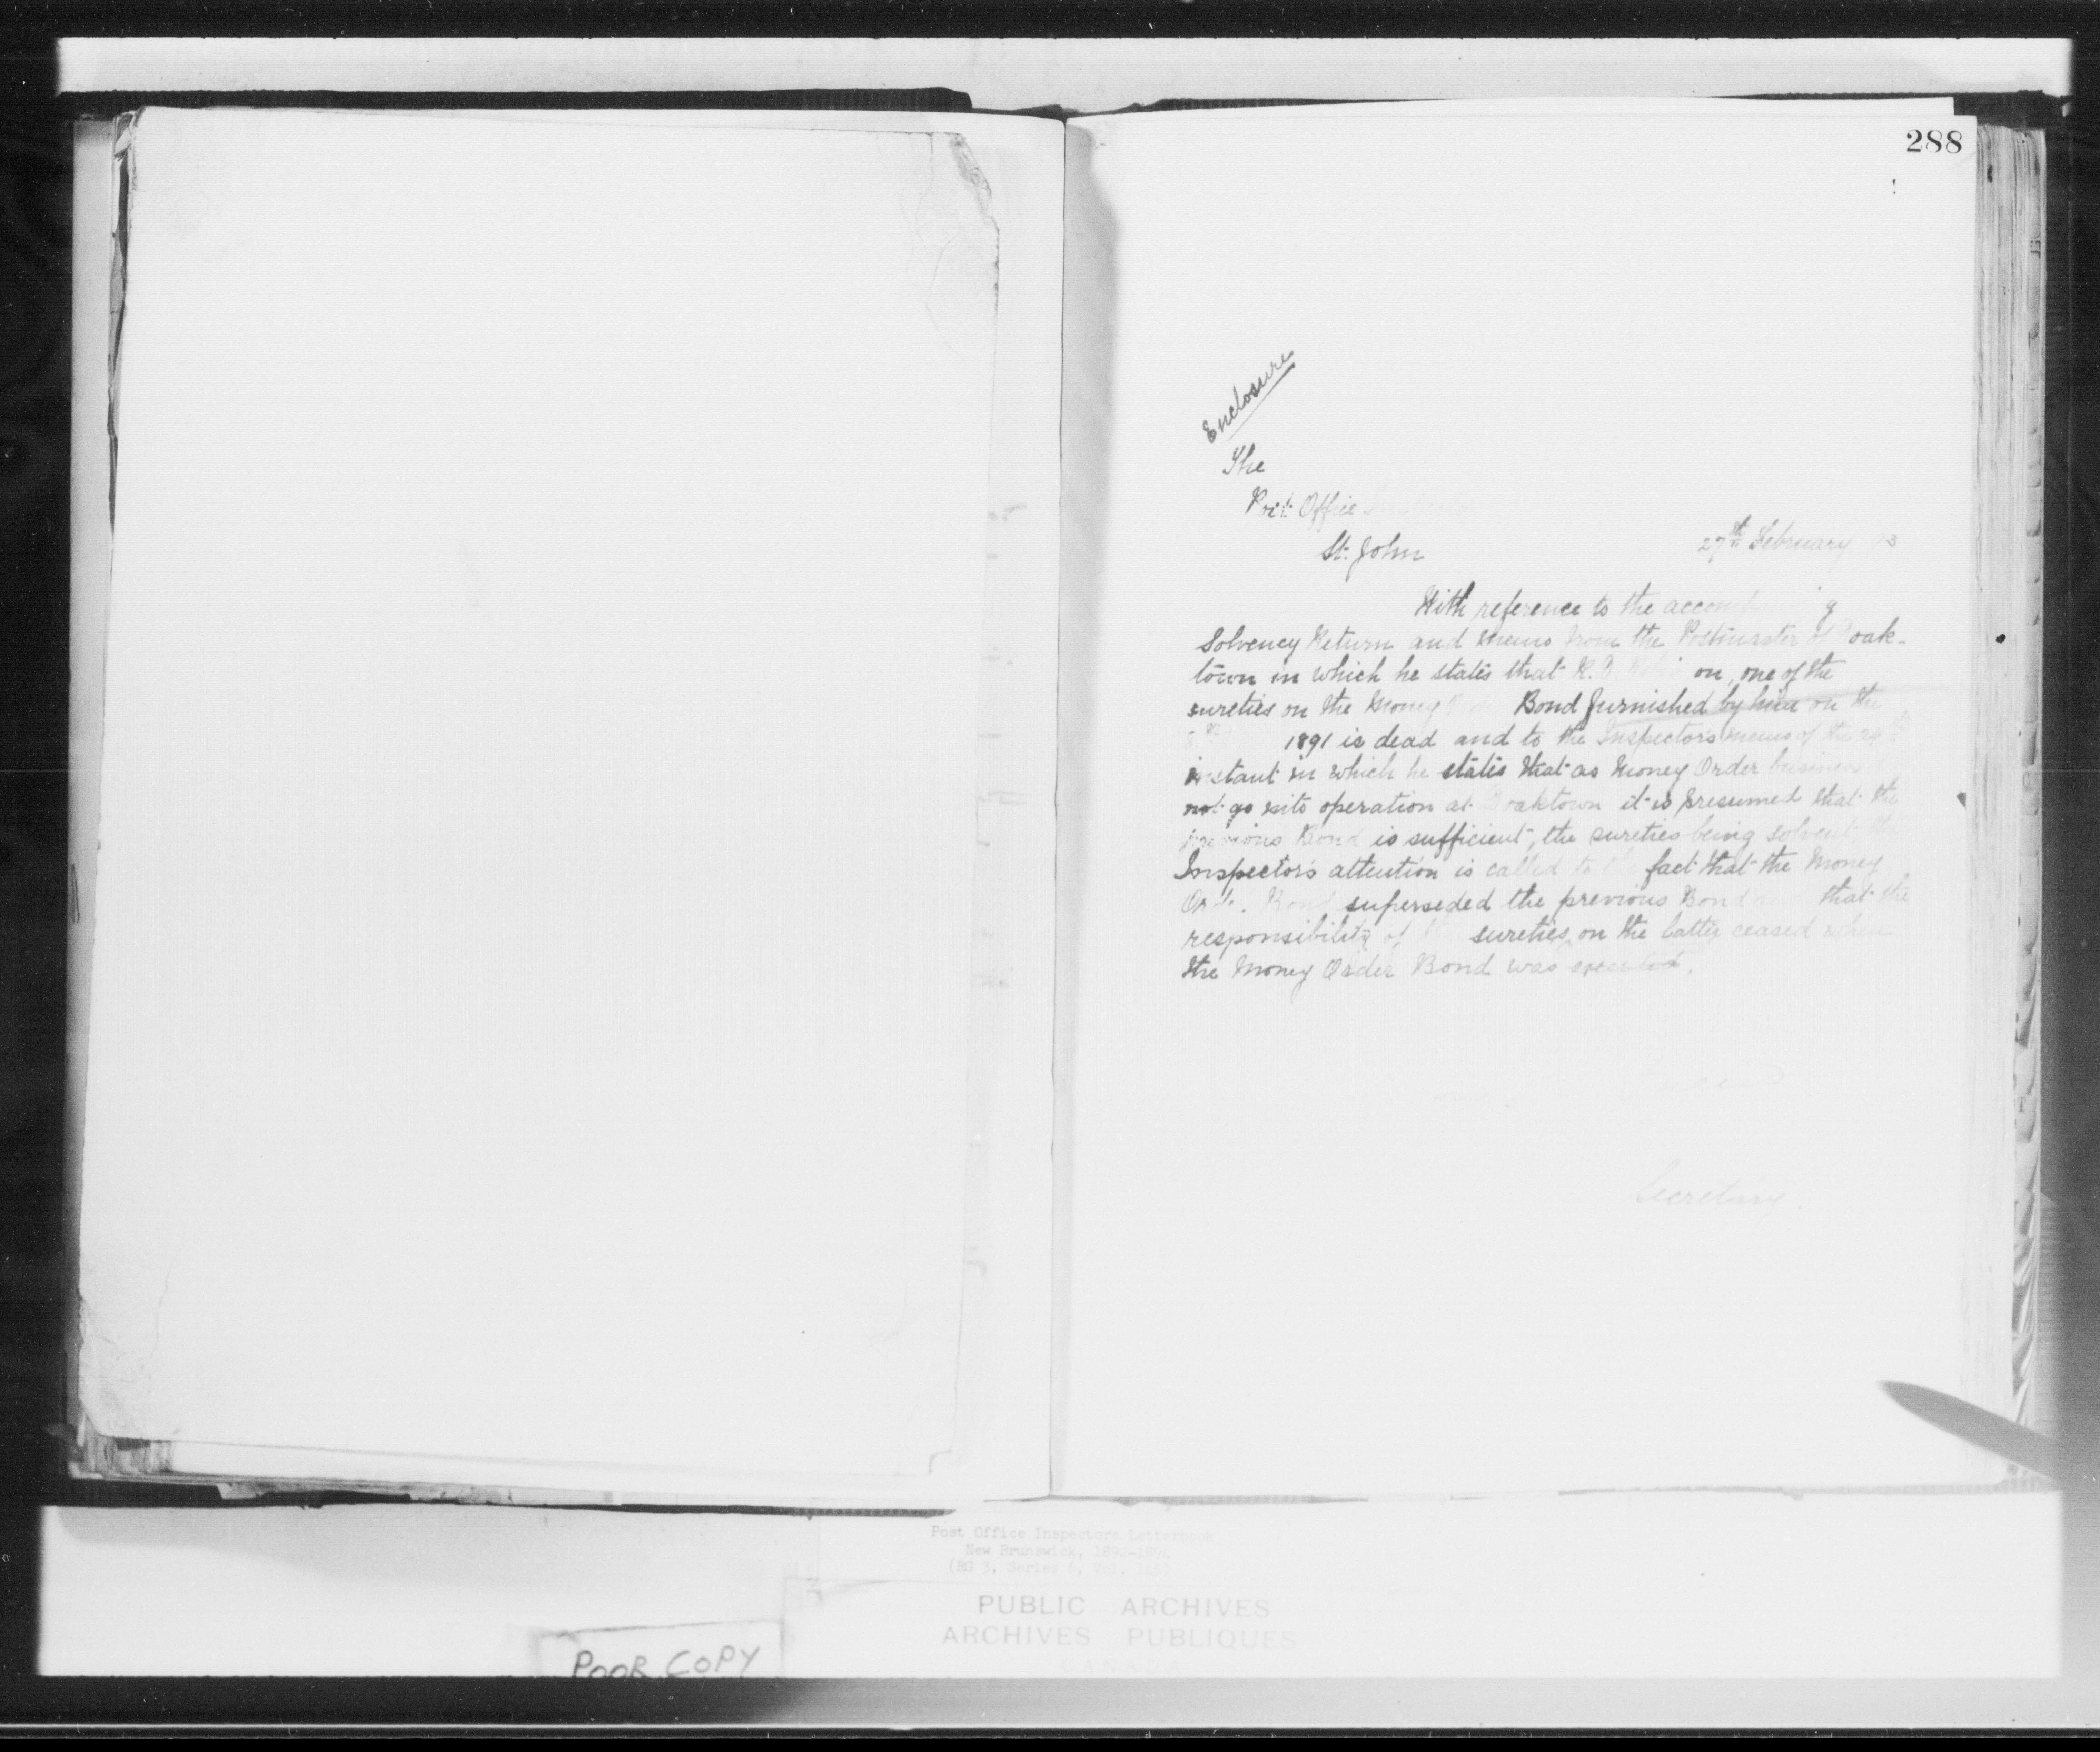 288
Enclosure
The
Post Office Inspector
St. John
27th February 93
With reference to the accompanying
Solvency Return and memo from the Postmaster of Doak-
town in which he states that R. D. on, one of the
sureties on the Money Order Bond furnished by him on the
8th 1891 is dead and to the Inspector's memo of the 24th
instant in which he states that as Money Order business
not go into operation at Doaktown it is presumed that the
previous Bond is sufficient, the sureties being solvent, the
Inspector's attention is called to the fact that the Money
Order Bond superseded the previous Bond and that the
responsibility of the sureties on the latter ceased when
the Money Order Bond was executed.
Secretary.
Post Office Inspectors Letterbook
New Brunswick, 1892-1894
(RG 3, Series 6, Vol.
PUBLIC ARCHIVES
ARCHIVES PUBLIQUES
CANADA
POOR COPY